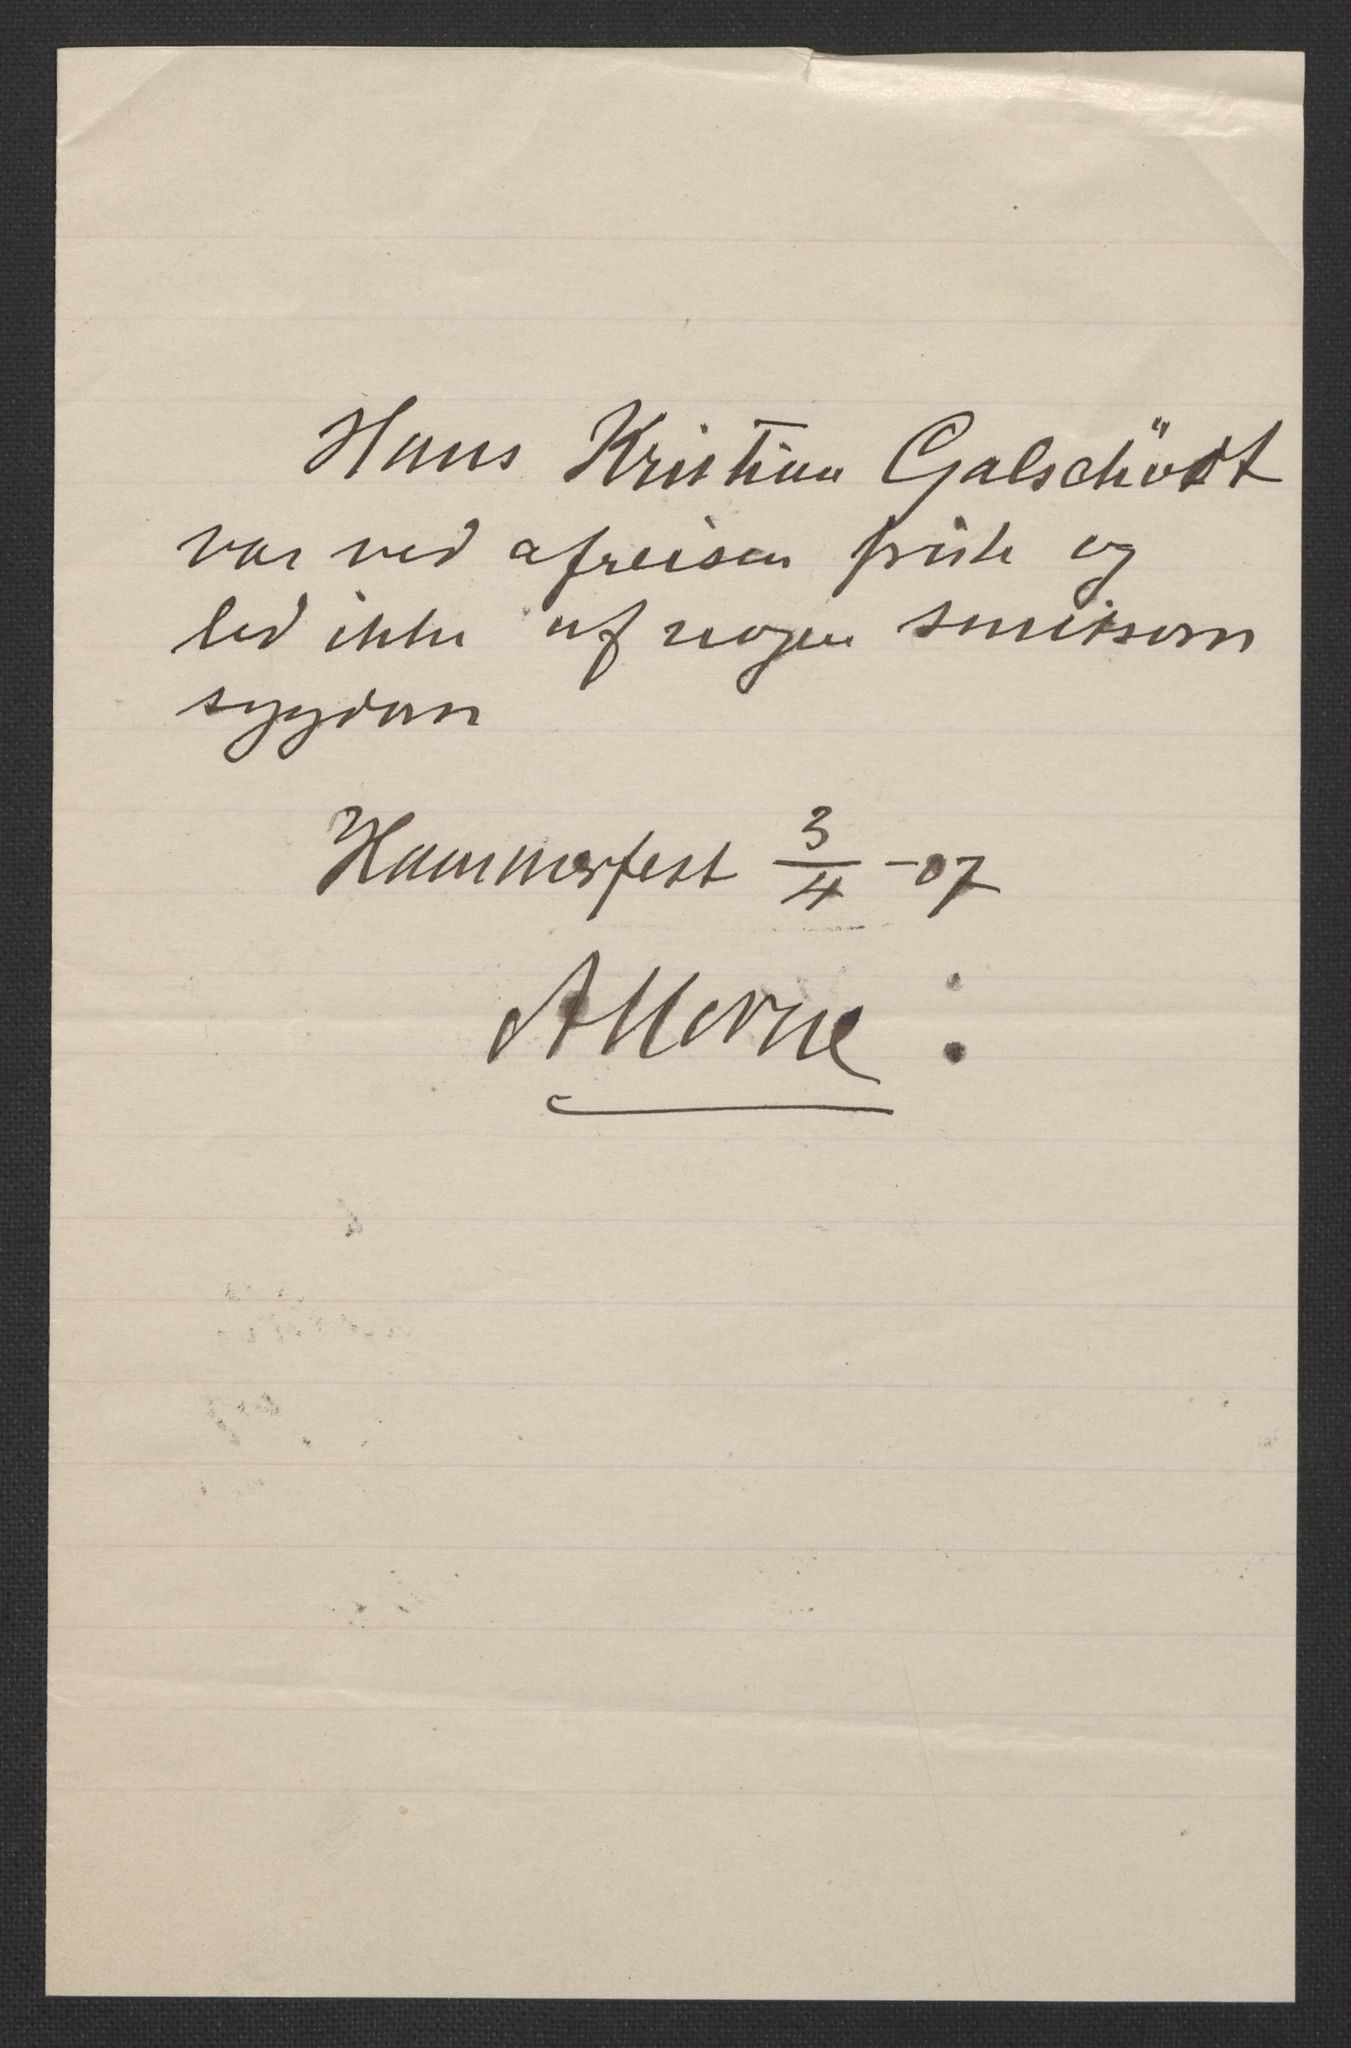 Hans Kristian Galschödt
var ved afreisen frisk og
led ikke af nogen smitsom
sygdom
Hammerfest 3/4 -07